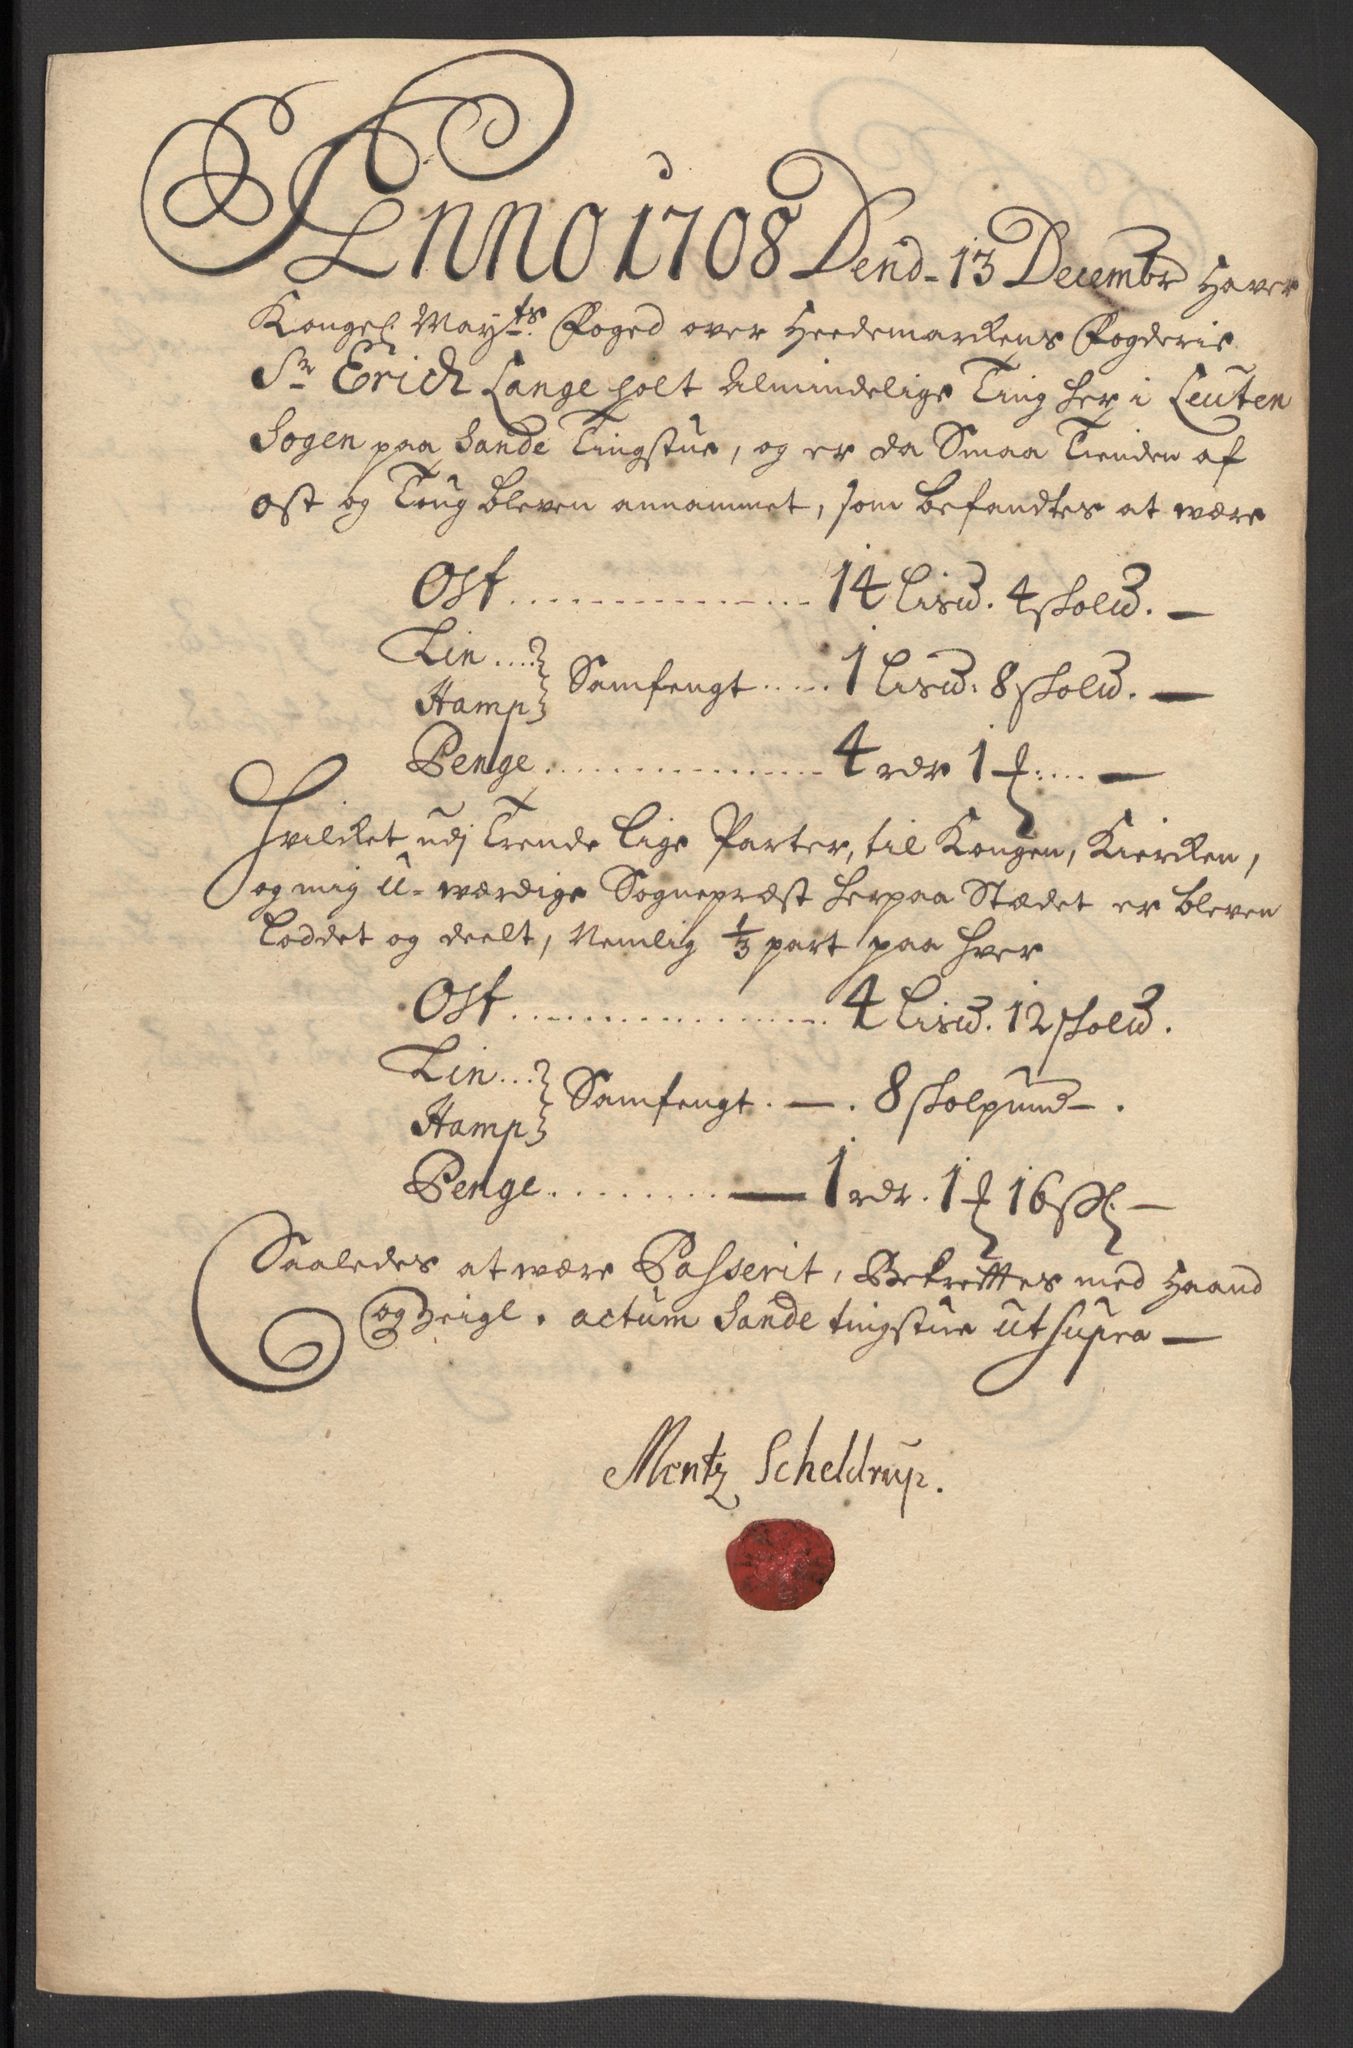 Anno 1708 Dend 13 Decembr Haver
Kongel. Mayts. Foged over Heedemarckens Fogderie
Sr Erich Lange holt Almindelige Ting her i Leuten
Sogen paa Sande Tingstue, og er da Smaa Tienden af
ost og Toug bleven annammet, som befandtes at være
Ost ............ 14 Lisd. 4 skold. —
Lin ....
Hamp } Samfengt ..... 1 Lisd. 8 skold. —
Penge ............ 4 rdr 1 ƒ ..... —
Hvilcket udj Trende lige Parter, til Kongen, Kiercken,
og mig u-værdige Sognepræst herpaa Stædet er bleven
Loddet og deelt, Nemlig 1/3 part paa hver
Ost ............ 4 Lisd. 12 skold.
Lin ...
Hamp } Samfengt. — . 8 skolpund — .
Penge ........ — 1 rdr. 1 ƒ 16 sk —
Saaledes at være Passerit, Bekreftes med Haand
og Zeigl. actum Sande tingstue ut supra —
Mentz Scheldrup.